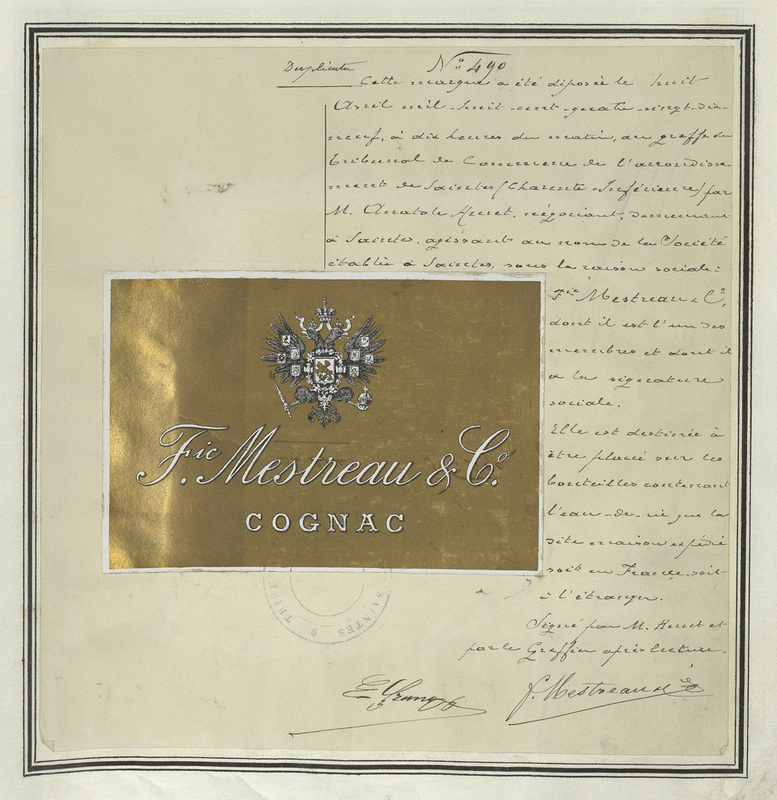 Duplicata
Nº 490
Cette marque a été déposée le huit
Avril mil-huit-cent-quatre-vingt-dix-
neuf, à dix heures du matin, au greffe du
Tribunal de Commerce de l'arrondisse-
ment de Saintes (Charente-Inférieure) par
M. Anatole Huret, négociant, demeurant
à Saintes, agissant au nom de la Société
établie à Saintes, sous la raison sociale:
Fic Mestreau & Cº,
dont il est l'un des
membres et dont il
a la signature
sociale.
Elle est destinée à
être placée sur les
bouteilles contenant
l'eau-de-vie que la
dite maison expédie
soit en France, soit
à l'étranger.
Signé par M. Huret et
par le Greffier après lecture.
Fic Mestreau & Cº.
COGNAC
SAINTES
f. Mestreau & Cie